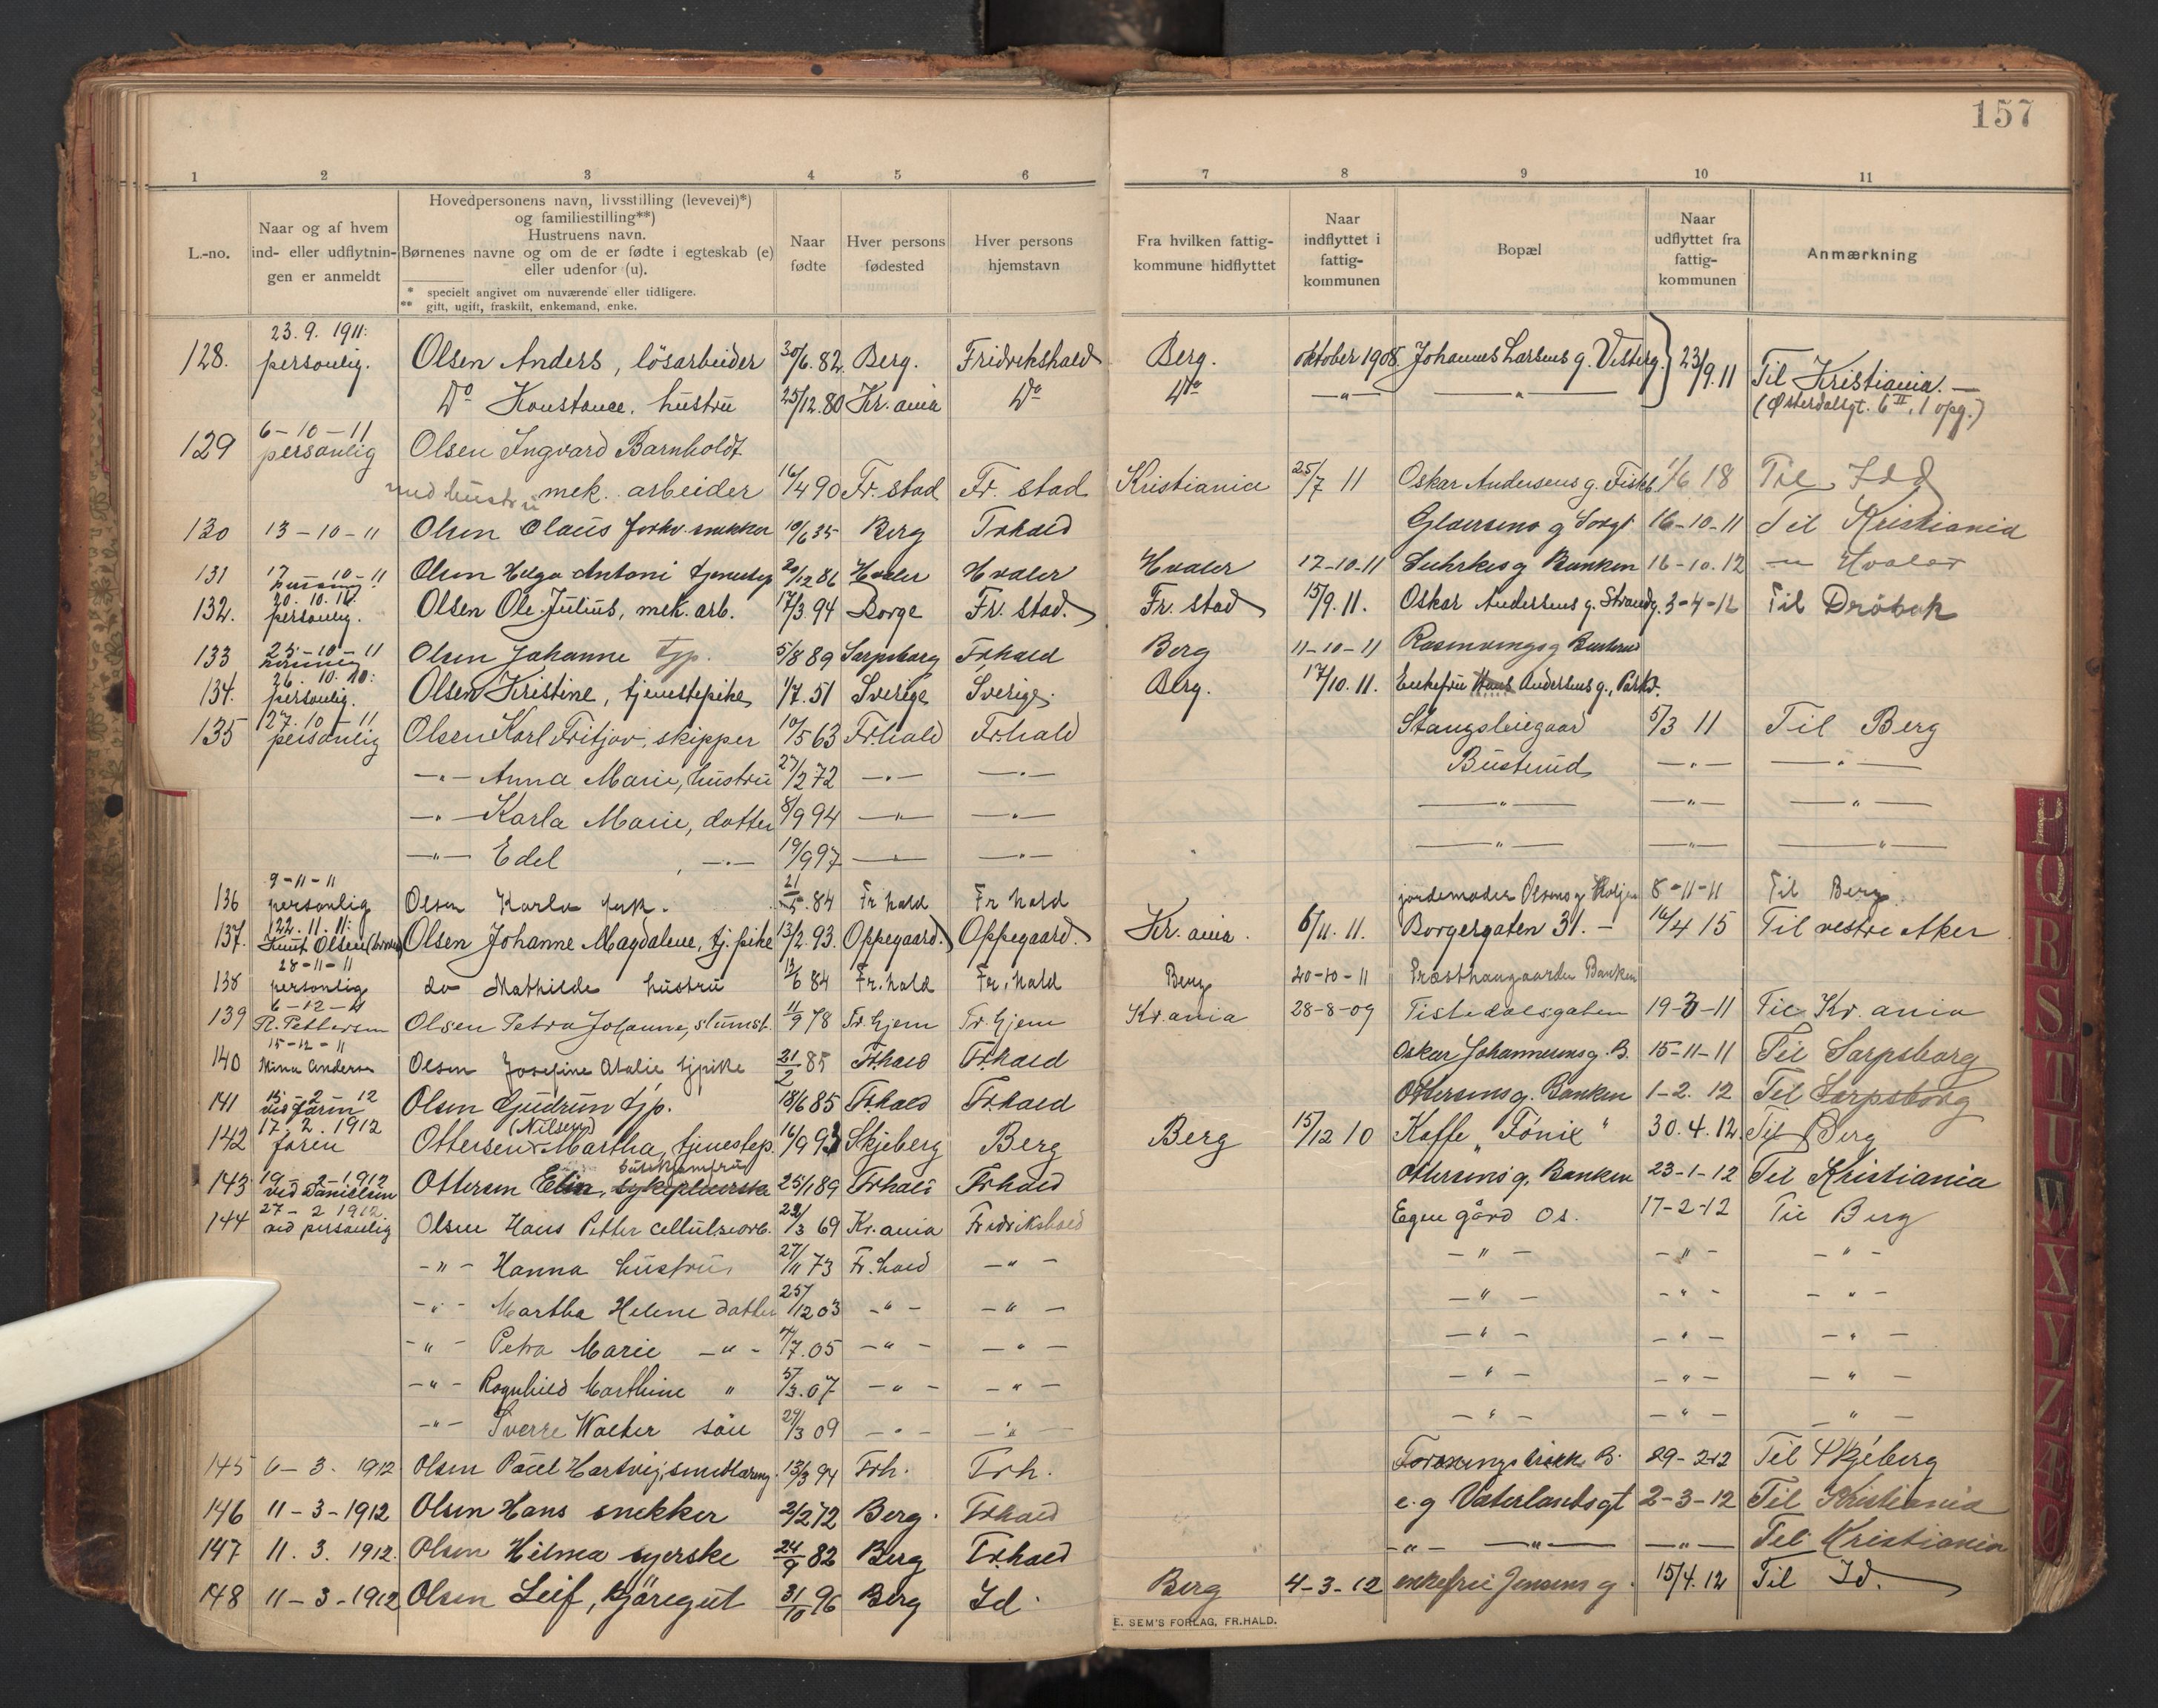 157
1 2 3 4 5 6 7 8 9 10 11
L.-no.
Naar og af hvem
ind- eller udflytnin-
gen er anmeldt
Hovedpersonens navn, livsstilling (levevei)*)
og familiestilling**)
Hustruens navn.
Børnenes navne og om de er fødte i egteskab (e)
eller udenfor (u).
* specielt angivet om nuværende eller tidligere.
** gift, ugift, fraskilt, enkemand, enke.
Naar
fødte
Hver persons
fødested
Hver persons
hjemstavn
Fra hvilken fattig-
kommune hidflyttet
Naar
indflyttet i
fattig-
kommunen
Bopæl
Naar
udflyttet fra
fattig-
kommunen
Anmærkning
23.9.1911:
128. personlig. Olsen Anders, lösarbeider 30/6.82. Berg. Fridrekshald Berg. oktober 1908 Johannes Larsens g. Vesterg. 23/9.11 Til Kristiania. —
Do Konstance, hustru 25/12.80 Kr.ania Do Do —"— —"— (Østerdalsgt. 6 II, 1 opg.)
6-10-11
129 personlig Olsen Ingvard Barnholdt
med hustru mek. arbeider 16/4 90 Fr.stad Fr. stad Kristiania 25/7 11 Oskar Andersens g. Fiskb. 1/6 18 Til Idd
130 13-10-11 Olsen Olaus forhv. snekker 10/6 35 Berg Frhald 16-10-11 Til Kristiania
131 17-10-11 Olsen Helga Antoni tjenestep 20/12 86 Hvaler Hvaler Hvaler 17-10-11 Suhrkes g Banken 16-10.12 —"— Hvaler
20.10.11.
132. personlig. Olsen Ole Julius, mek. arb. 17/3.94 Borge Fr. stad. Fr. stad 15/9.11. Oskar Andersens g. Strandg. 3-4-12 Til Dröbak
25-10-11
133 Olsen Johanne tjp. 5/8 89 Sarpsborg Frhald Berg 11-10-11 Rosenvinges g Busterud
26.10.10:
134. personlig. Olsen Kristine, tjenestepike 1/7.51 Sverige Sverige. Berg. 17/10.11. Enkefru Hans Andersens g., Park.
27.10-11
135 personlig Olsen Karl Fritjov, skipper 10/5 63 Fr.hald Fr.hald Stangsleiegaar 5/3 11 Til Berg
—"— Anna Marie, hustru 27/2 72 —"— —"— Busterud —"— —"—
—"— Karla Marie, datter 8/9 94 —"— —"— —"— —"— —"—
—"— Edel —"— 19/9 97 —"— —"— —"— —"— —"—
9-11-11
136 personlig Olsen Karla frk. 21/5.84 Fr hald Fr hald jordemoder Olsens g 8-11-11 Til Berg
22.11.11:
137. Knut Olsen Olsen Johanne Magdalene, tj. pike 13/2.93. Oppegaard. Oppegaard. Kr.ania. 6/11.11. Borgergaten 31. — 16/4 15 Til vestre Aker
28-11-11
138 personlig do Mathilde hustru 12/6 84 Fr.hald Fr.hald Berg 20-10-11 Præsthaugaarden Banken
6-12-11
139 R. Pettersen Olsen Petra Johanne, slumst. 11/9 78 Tr.hjem Tr.hjem Kr.ania 28-8-09 Tistedalsgaten 19-3-11 Til Kr.ania
15-12-11
140 Mina Andersen Olsen Josefine Atalie tjpike 21/2 85 Frhald Fr.hald Oskar Johannesens g. B. 15-11-11 Til Sarpsborg
15-2-12
141 ved faren Olsen Gudrun tjp. 18/6 85 Frhald Fr.hald Ottersens g. Banken 1-2.12 Til Sarpsborg
17.2.1912 (Nilsen)
142 faren Ottersen Martha, tjenestep. 16/9 93 Skjeberg Berg Berg 15/12 10 Kaffe "Fönix" 30.4.12. Til Berg
19-2-1912 buskjomfru
143 ved Danielsen Ottersen Elin, sykepleierske 25/1 89 Frhald Frhald Ottersens g. Banken 23-1-12 Til Kristiania
27-2 1912
144 ved personlig Olsen Hans Petter cellulosearb. 22/3 69 Kr.ania Fredrikshald Egen gård Os. 17-2-12 Til Berg
-"- Hanna hustru 27/11 73 Fr.hald -"- -"- -"- -"-
-"- Martha Helene datter 25/12 03 -"- -"- -"- -"- -"-
-"- Petra Marie -"- 7/7.05 -"- -"- -"- -"- -"-
-"- Ragnhild Marthine " 5/3.07 -"- -"- -"- -"- -"-
-"- Sverre Walter sön 29/3 09 -"- -"- -"- -"- -"-
145 6-3.1912 Olsen Paul Hartvig, smedlæreng. 13/3 94 Frh. Frh. 29-2-12 Til Skjeberg
146 11-3-1912 Olsen Hans snekker 2/2 72 Berg. Frhald e.g Vaterlandsgt 2-3-12 Til Kristiania
147 11.3.1912. Olsen Hilma syerske 24/9 82 Berg Frhald -"- —"— —"— Til Kristiania
148 11-3-1912 Olsen Leif, kjöregut 31/10 96 Berg Id Berg 4-3-12 enkefru Jensens g. 15/4.12 Til Id.
E. SEM'S FORLAG, FR.HALD.
P
Q
R
S
T
U
W
X
Y
Z
Æ
Ø